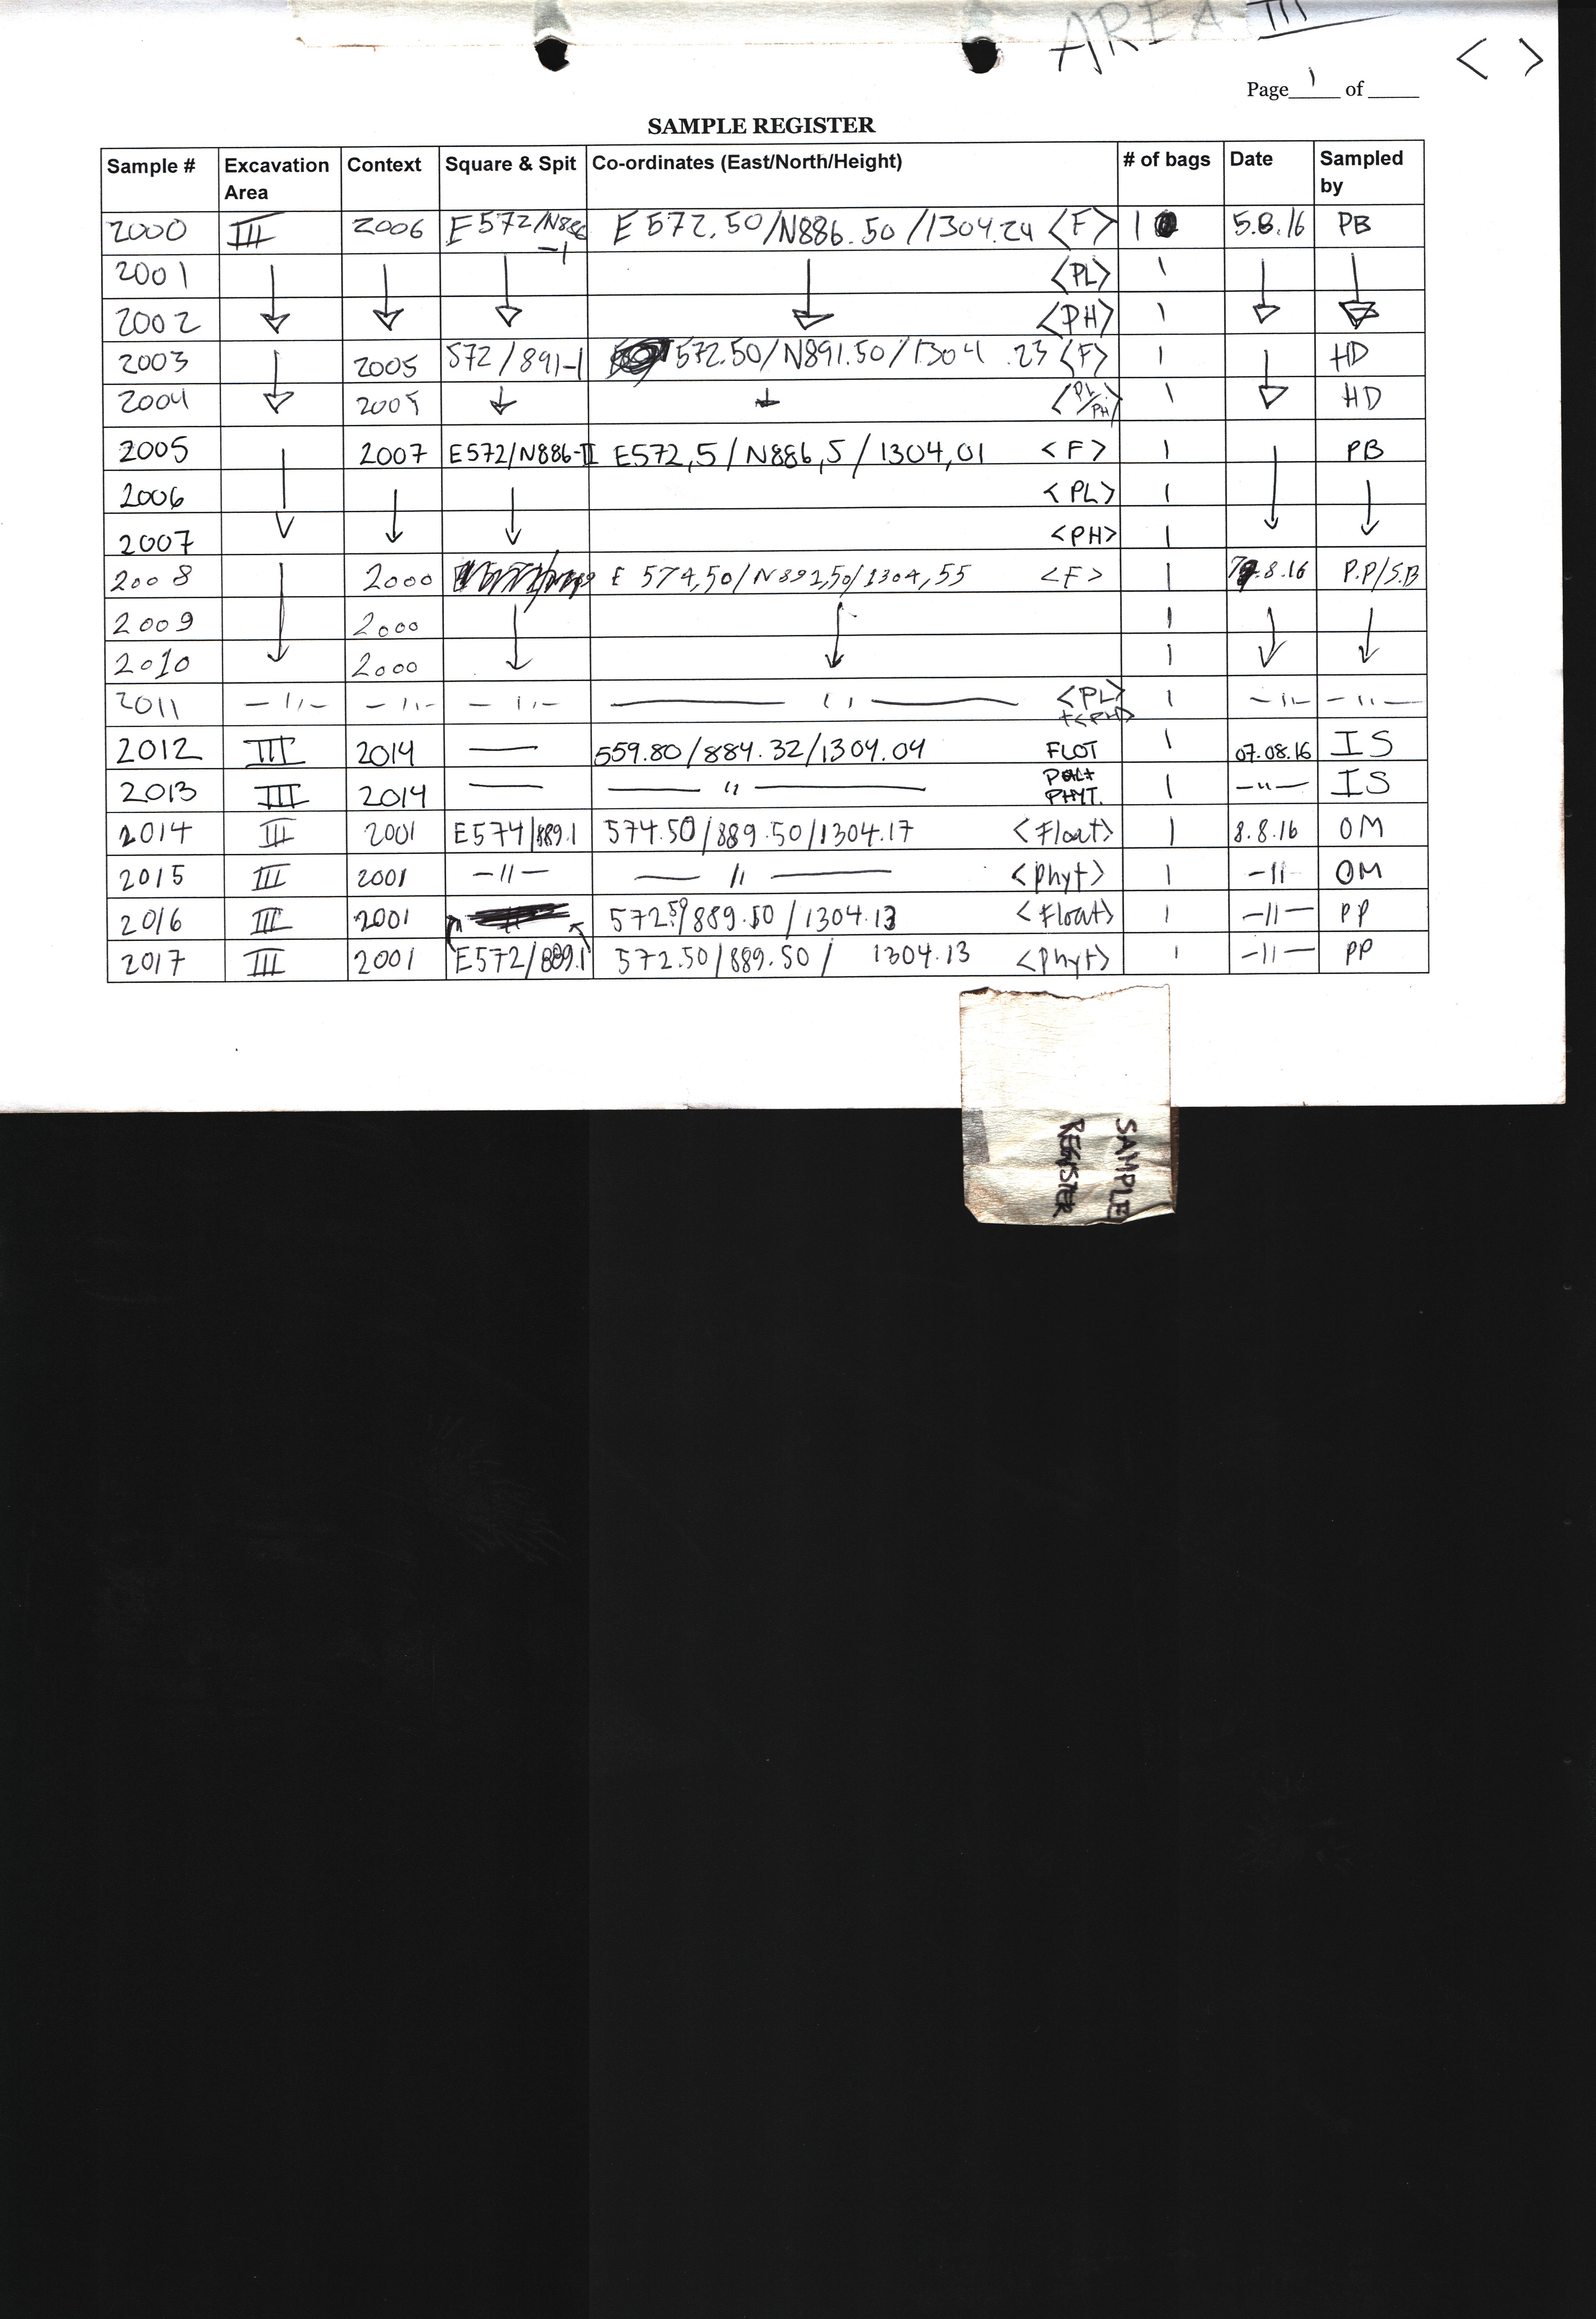 AREA III
< >
Page 1 of
SAMPLE REGISTER
Sample # Excavation Area Context Square & Spit Co-ordinates (East/North/Height) # of bags Date Sampled by
2000 III 2006 E572/N886-1 E 572.50/N886.50/1304.24 <F> 1 5.8.16 PB
2001 <PL> 1
2002 <PH> 1
2003 2005 572/891-1 572.50/N891.50/1304.23 <F> 1 HD
2004 2005 <PL/PH> 1 HD
2005 2007 E572/N886-II E572,5/N886,5/1304,01 <F> 1 PB
2006 <PL> 1
2007 <PH> 1
2008 2000 E 574,50/N892,50/1304,55 <F> 1 7.8.16 P.P/S.B
2009 2000 1
2010 2000 1
2011 -"- -"- -"- — " — <PL> +<PH> 1 -"- -"-
2012 III 2014 — 559.80/884.32/1304.04 FLOT 1 07.08.16 IS
2013 III 2014 — — " — PHYT. 1 -"- IS
2014 III 2001 E574/889.1 574.50/889.50/1304.17 <Float> 1 8.8.16 OM
2015 III 2001 -"- — " — <Phyt> 1 -"- OM
2016 III 2001 572.50/889.50/1304.13 <Float> 1 -"- PP
2017 III 2001 E572/889.1 572.50/889.50/1304.13 <Phyt> 1 -"- PP
SAMPLE
REGISTER